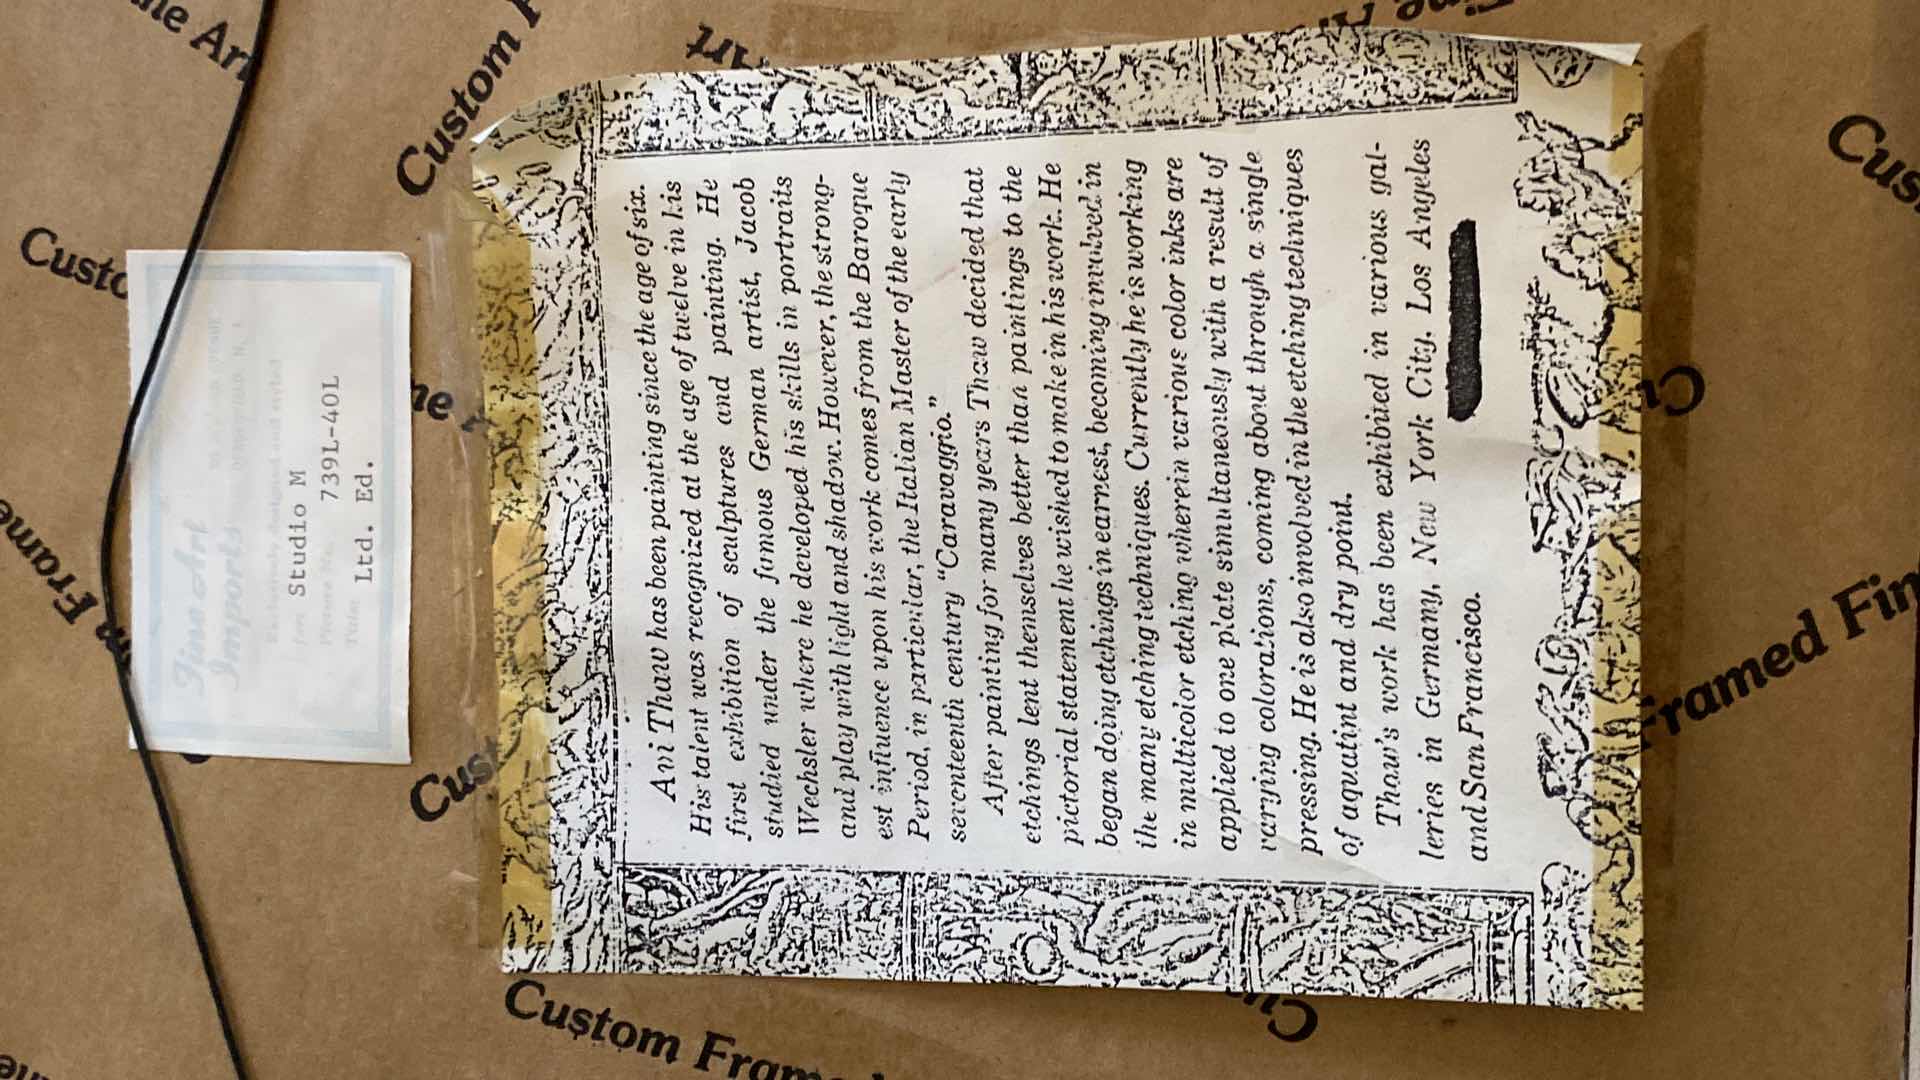 Fine Art
Imports
Exclusively designed and styled
for: Studio M
Picture No. 739L-40L
Title: Ltd. Ed.
Avi Thaw has been painting since the age of six.
His talent was recognized at the age of twelve in his
first exhibition of sculptures and painting. He
studied under the famous German artist, Jacob
Wechsler where he developed his skills in portraits
and play with light and shadow. However, the strong-
est influence upon his work comes from the Baroque
Period, in particular, the Italian Master of the early
seventeenth century “Caravaggio.”
After painting for many years Thaw decided that
etchings lent themselves better than paintings to the
pictorial statement he wished to make in his work. He
began doing etchings in earnest, becoming involved in
the many etching techniques. Currently he is working
in multicolor etching wherein various color inks are
applied to one plate simultaneously with a result of
varying colorations, coming about through a single
pressing. He is also involved in the etching techniques
of aquatint and dry point.
Thaw's work has been exhibited in various gal-
leries in Germany, New York City, Los Angeles
and San Francisco.
Custom Frame
Custom F
Framed Fin
Custo
Cust
Cus
ne Art
Frame
Art
Fine Art